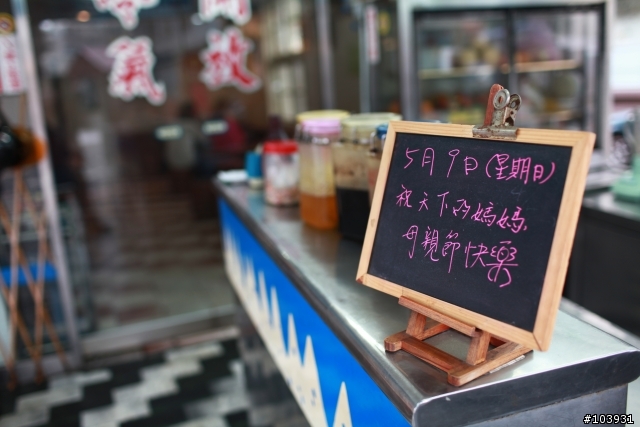 冷氣
開放
5月9日(星期日)
祝天下的媽媽
母親節快樂
#103931